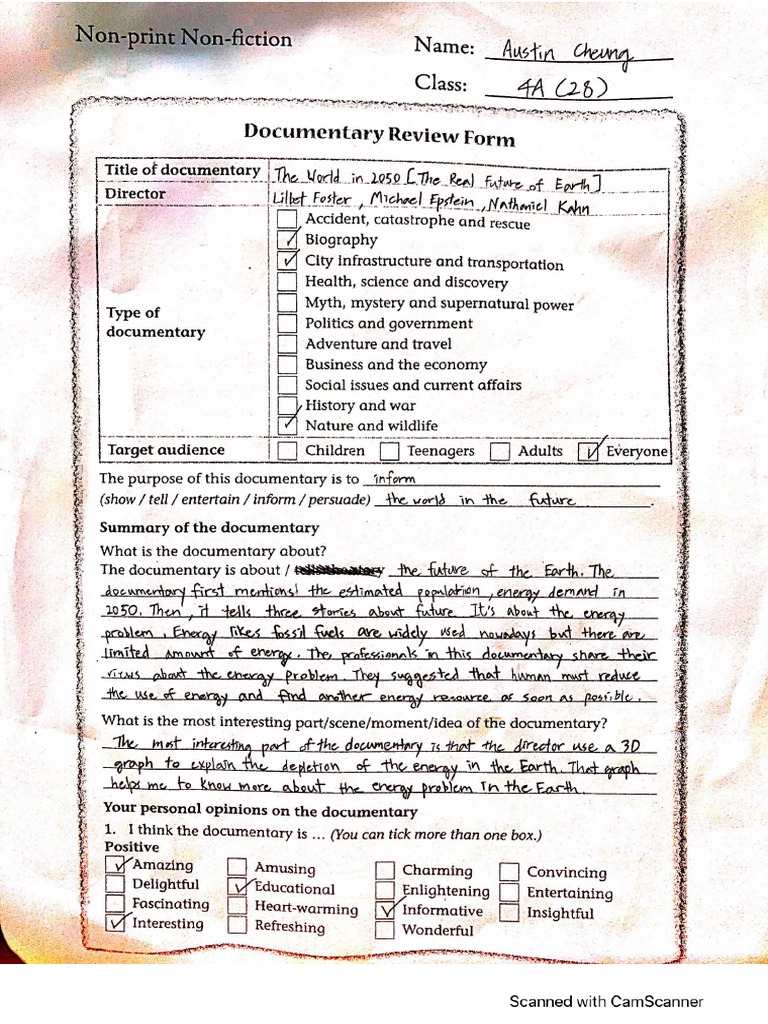 Non-print Non-fiction
Name: Austin Cheung
Class: 4A (28)
Documentary Review Form
Title of documentary The World in 2050 [The Real Future of Earth]
Director Lilbet Foster, Michael Epstein, Nathaniel Kahn
Type of documentary
Accident, catastrophe and rescue
✓ Biography
✓ City infrastructure and transportation
Health, science and discovery
Myth, mystery and supernatural power
Politics and government
Adventure and travel
Business and the economy
Social issues and current affairs
History and war
✓ Nature and wildlife
Target audience Children Teenagers Adults ✓ Everyone
The purpose of this documentary is to inform
(show / tell / entertain / inform / persuade) the world in the future.
Summary of the documentary
What is the documentary about?
The documentary is about / the future of the Earth. The
documentary first mentions the estimated population, energy demand in
2050. Then, it tells three stories about future It's about the energy
problem. Energy likes fossil fuels are widely used nowadays but there are
limited amount of energy. The professionals in this documentary share their
views about the energy problem. They suggested that human must reduce
the use of energy and find another energy resource as soon as possible.
What is the most interesting part/scene/moment/idea of the documentary?
The most interesting part of the documentary is that the director use a 3D
graph to explain the depletion of the energy in the Earth. That graph
helps me to know more about the energy problem in the Earth
Your personal opinions on the documentary
1. I think the documentary is ... (You can tick more than one box.)
Positive
✓ Amazing Amusing Charming Convincing
Delightful ✓ Educational Enlightening Entertaining
Fascinating Heart-warming ✓ Informative Insightful
✓ Interesting Refreshing Wonderful
Scanned with CamScanner